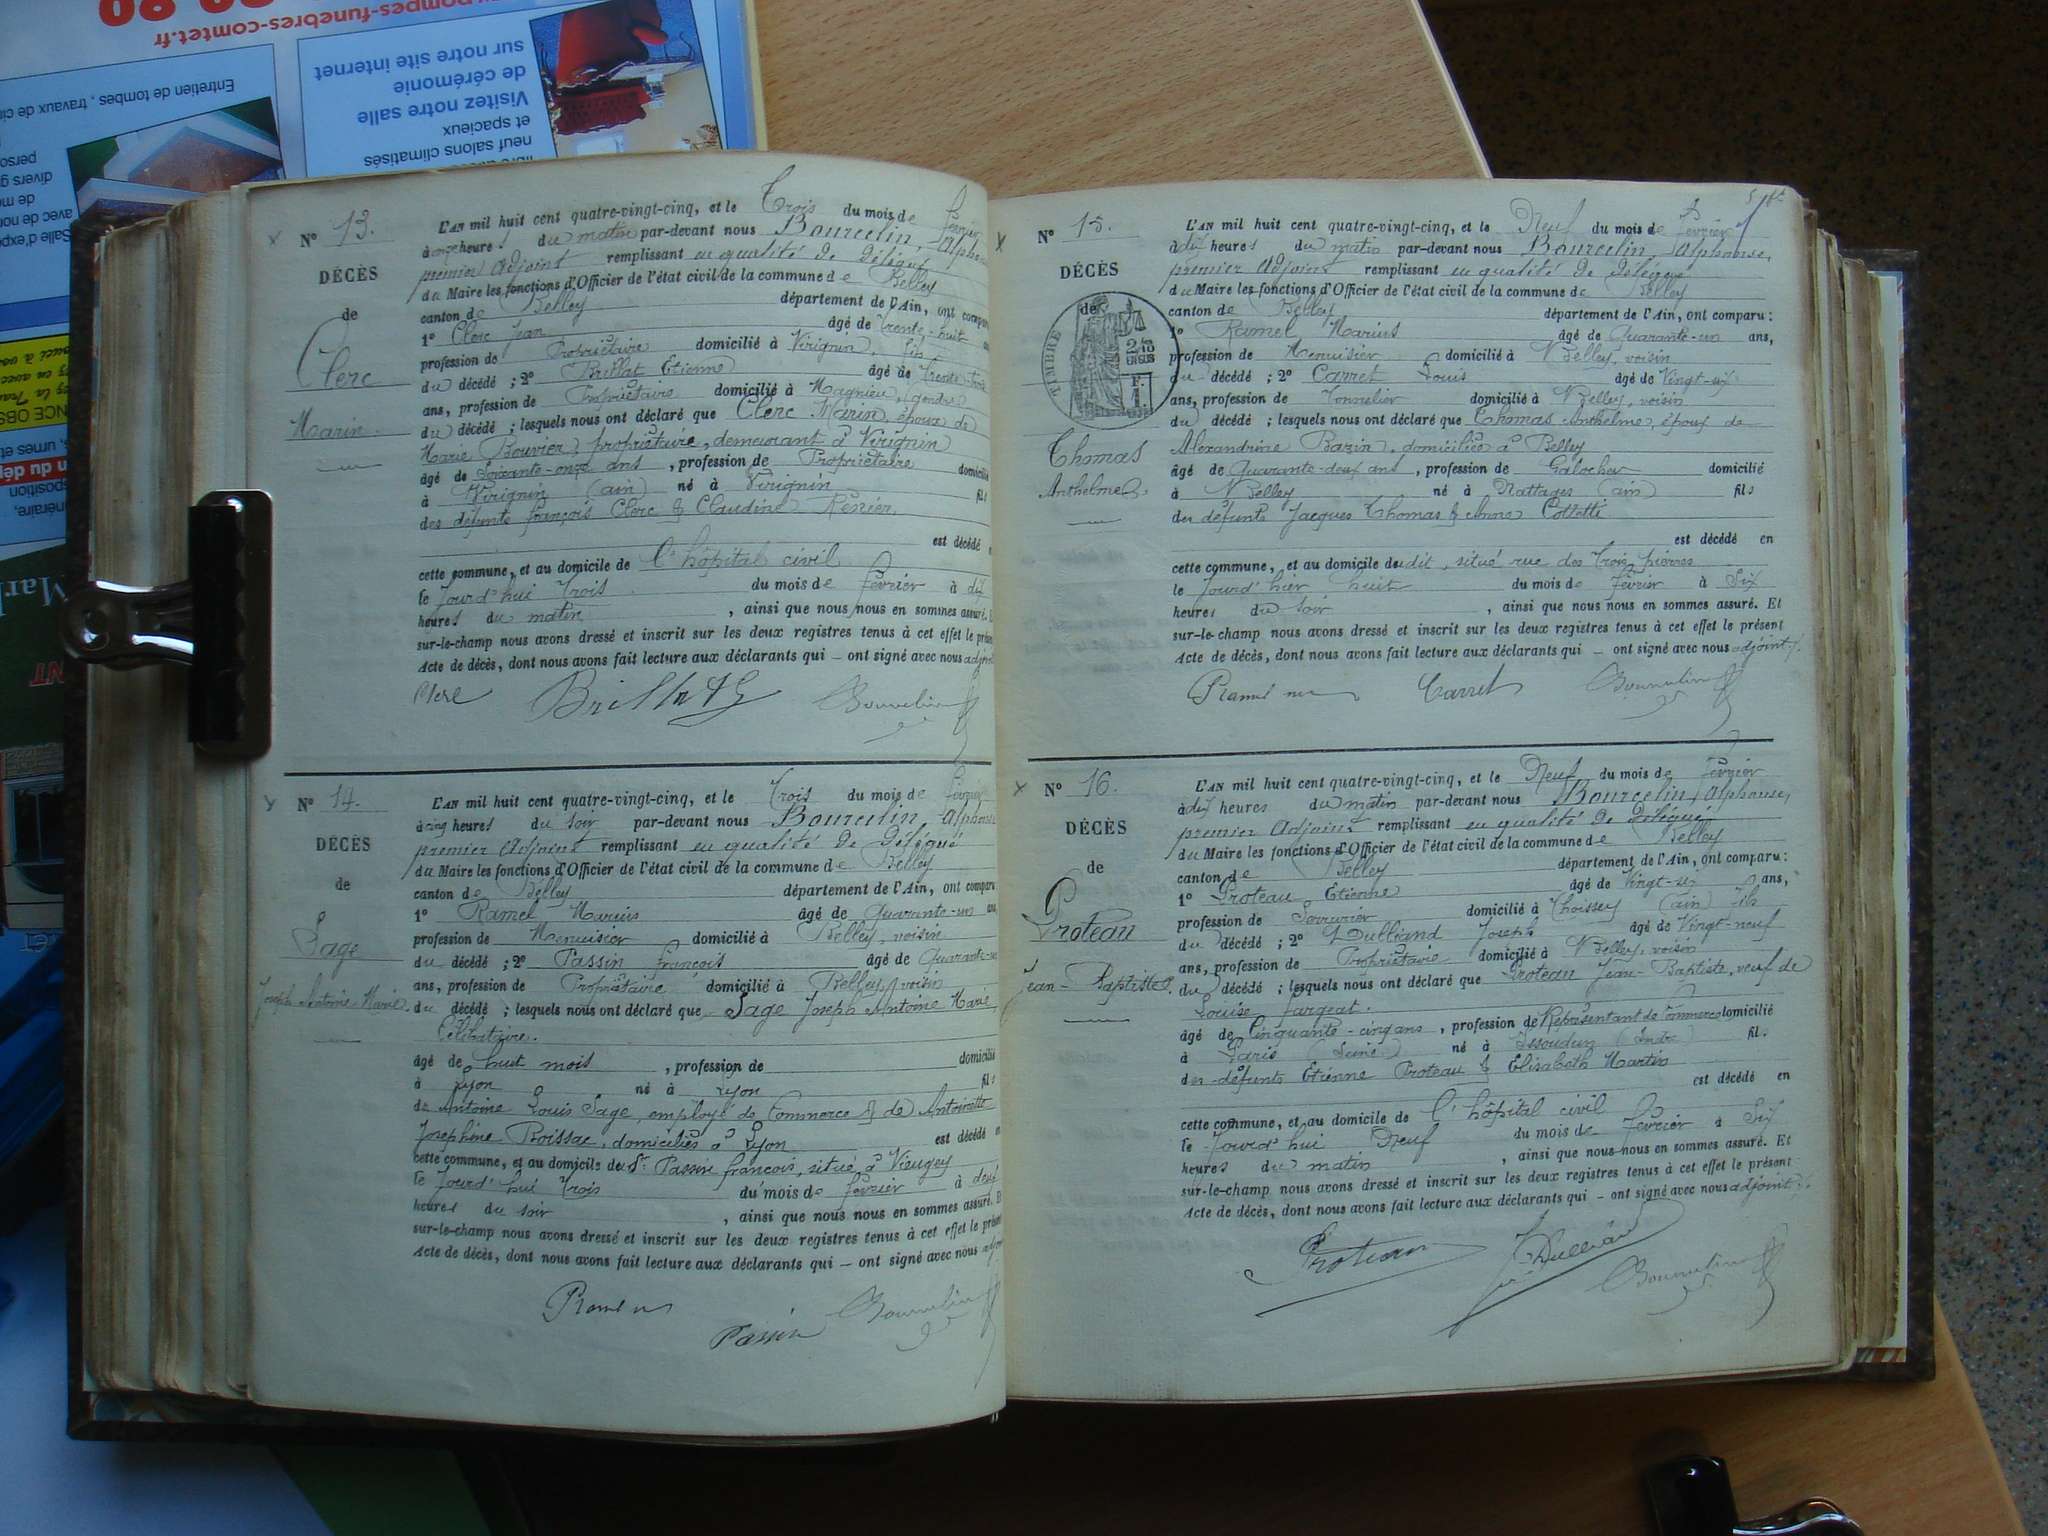 pompes-funebres-comtet.fr
Entretien de tombes, travaux de
Visitez notre salle
de cérémonie
sur notre site internet
neuf salons climatisés
et spacieux
N° 13.
DÉCÈS
de
Clerc
Marin
L'AN mil huit cent quatre-vingt-cinq, et le Trois du mois de février
à onze heures du matin par-devant nous Bourcelin, Alphonse
premier Adjoint remplissant en qualité de Délégué
du Maire les fonctions d'Officier de l'état civil de la commune de Belley
canton de Belley département de l'Ain, ont comparu
1° Clerc Jean âgé de trente-huit
profession de Propriétaire domicilié à Virignin, fils
du décédé ; 2° Brillat Etienne âgé de trente
ans, profession de Propriétaire domicilié à Magnieu, gendre
du décédé ; lesquels nous ont déclaré que Clerc Marin, époux de
Marie Bouvier, propriétaire, demeurant à Virignin
âgé de Soixante-onze ans, profession de Propriétaire domicilié
à Virignin (ain) né à Virignin fils
des défunts françois Clerc & Claudine Renier.
est décédé en
cette commune, et au domicile de l'hôpital civil
le Jourd'hui Trois du mois de février à dix
heures du matin, ainsi que nous nous en sommes assuré. Et
sur-le-champ nous avons dressé et inscrit sur les deux registres tenus à cet effet le présent
Acte de décès, dont nous avons fait lecture aux déclarants qui — ont signé avec nous adjoint
Clerc Brillat Bourcelin
N° 14.
DÉCÈS
de
Sage
Joseph Antoine Marie
L'AN mil huit cent quatre-vingt-cinq, et le Trois du mois de février
à cinq heures du soir par-devant nous Bourcelin, Alphonse
premier Adjoint remplissant en qualité de Délégué
du Maire les fonctions d'Officier de l'état civil de la commune de Belley
canton de Belley département de l'Ain, ont comparu
1° Ramel Marius âgé de Quarante-un ans,
profession de Menuisier domicilié à Belley, voisin
du décédé ; 2° Passin françois âgé de Quarante
ans, profession de Propriétaire domicilié à Belley, voisin
du décédé ; lesquels nous ont déclaré que Sage Joseph Antoine Marie
Célibataire.
âgé de huit mois, profession de domicilié
à Lyon né à Lyon fils
de Antoine Louis Sage, employé de Commerce & de Antoinette
Joséphine Boissac, domiciliés à Lyon est décédé en
cette commune, et au domicile du Sr Passin françois, situé à Vieugey
le Jourd'hui Trois du mois de février à deux
heures du soir, ainsi que nous nous en sommes assuré. Et
sur-le-champ nous avons dressé et inscrit sur les deux registres tenus à cet effet le présent
Acte de décès, dont nous avons fait lecture aux déclarants qui — ont signé avec nous
Ramel Passin Bourcelin
N° 15.
DÉCÈS
de
TIMBRE
Thomas
Anthelme
L'AN mil huit cent quatre-vingt-cinq, et le Neuf du mois de février
à dix heures du matin par-devant nous Bourcelin, Alphonse,
premier Adjoint remplissant en qualité de Délégué
du Maire les fonctions d'Officier de l'état civil de la commune de Belley
canton de Belley département de l'Ain, ont comparu :
1° Ramel Marius âgé de Quarante-un ans,
profession de Menuisier domicilié à Belley, voisin
du décédé ; 2° Carret Louis âgé de Vingt-six
ans, profession de Tonnelier domicilié à Belley, voisin
du décédé ; lesquels nous ont déclaré que Thomas Anthelme, époux de
Alexandrine Bazin, domiciliée à Belley
âgé de Quarante-deux ans, profession de Galocher domicilié
à Belley né à Nattages (ain) fils
des défunts Jacques Thomas & Anne Colletti
est décédé en
cette commune, et au domicile dudit, situé rue des Trois pierres
le Jourd'hier huit du mois de février à Six
heures du soir, ainsi que nous nous en sommes assuré. Et
sur-le-champ nous avons dressé et inscrit sur les deux registres tenus à cet effet le présent
Acte de décès, dont nous avons fait lecture aux déclarants qui — ont signé avec nous adjoint
Ramel Carret Bourcelin
N° 16.
DÉCÈS
de
Proteau
Jean-Baptiste
L'AN mil huit cent quatre-vingt-cinq, et le Neuf du mois de février
à dix heures du matin par-devant nous Bourcelin, Alphonse,
premier Adjoint remplissant en qualité de Délégué
du Maire les fonctions d'Officier de l'état civil de la commune de Belley
canton de Belley département de l'Ain, ont comparu :
1° Proteau Etienne âgé de Vingt-six ans,
profession de Serrurier domicilié à Thoissey (ain) fils
du décédé ; 2° Dulliand Joseph âgé de Vingt-neuf
ans, profession de Propriétaire domicilié à Belley, voisin
du décédé ; lesquels nous ont déclaré que Proteau Jean-Baptiste, veuf de
Louise Fargeat.
âgé de Cinquante-cinq ans, profession de Représentant de Commerce domicilié
à Paris (Seine) né à Issoudun (Indre) fils
des défunts Etienne Proteau & Elisabeth Martin
est décédé en
cette commune, et au domicile de l'hôpital civil
le Jourd'hui Neuf du mois de février à Six
heures du matin, ainsi que nous nous en sommes assuré. Et
sur-le-champ nous avons dressé et inscrit sur les deux registres tenus à cet effet le présent
Acte de décès, dont nous avons fait lecture aux déclarants qui — ont signé avec nous adjoint
Proteau Dulliand Bourcelin